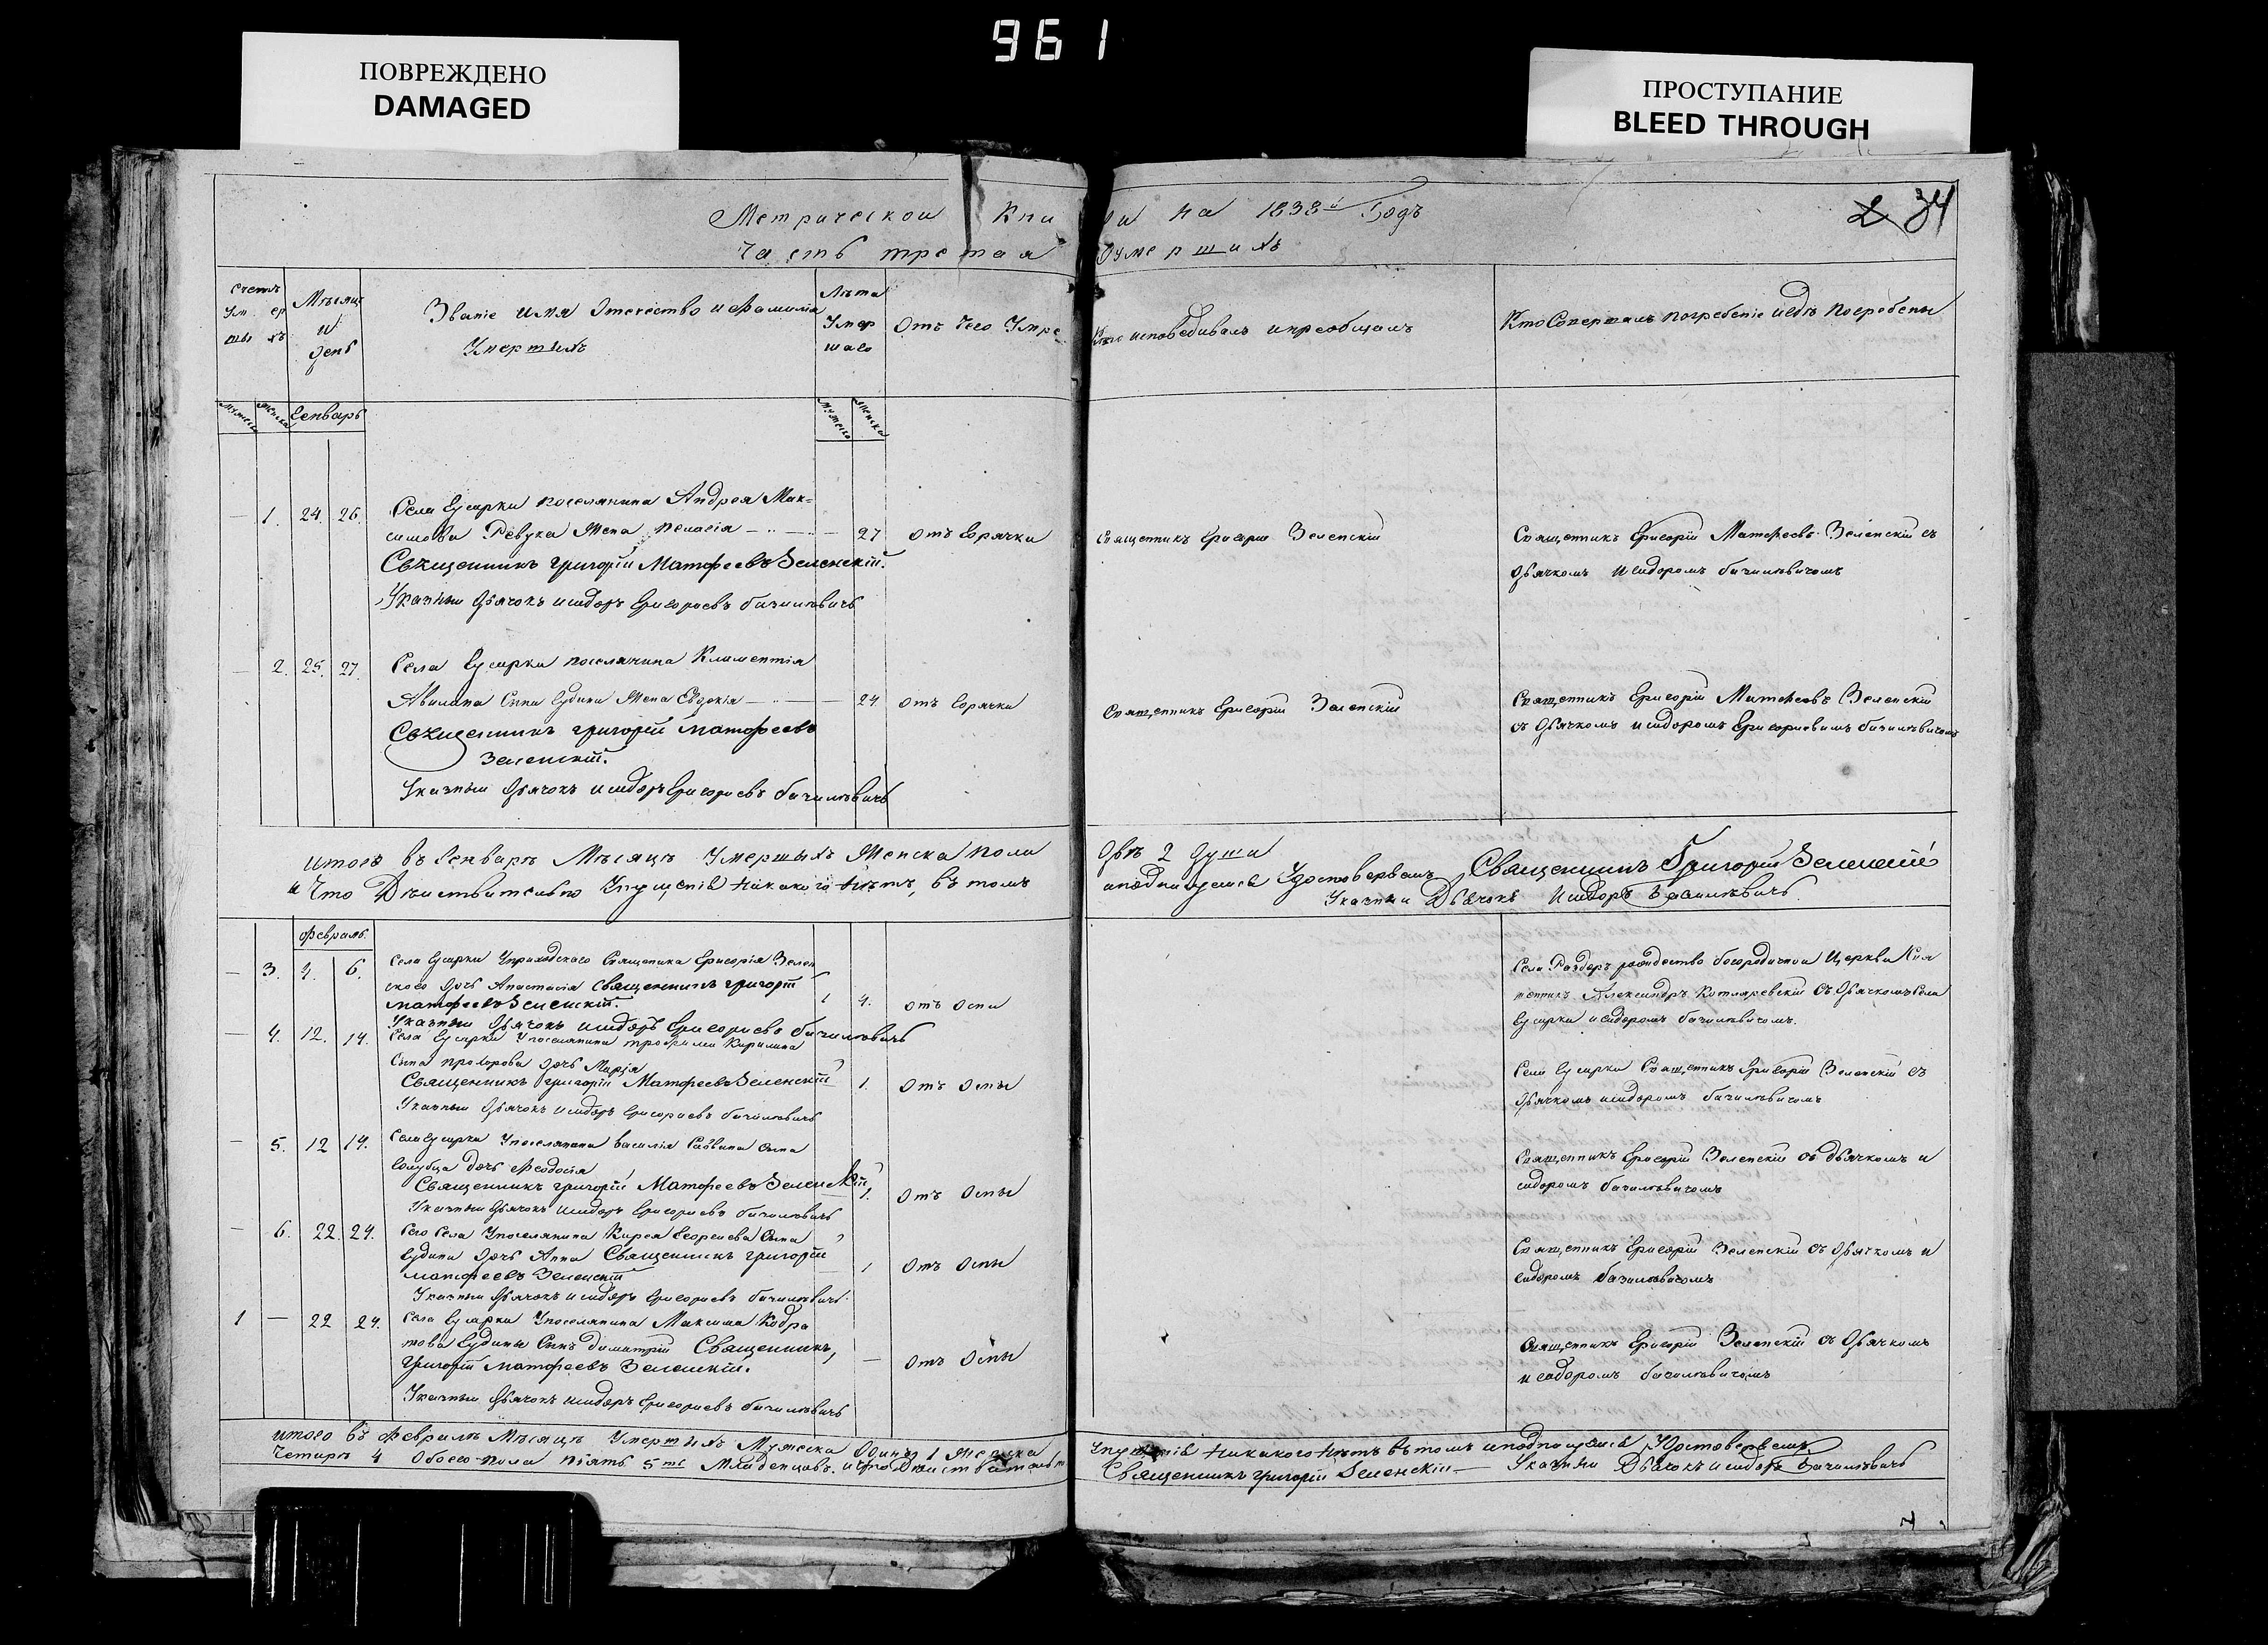 961
ПОВРЕЖДЕНО
DAMAGED
ПРОСТУПАНИЕ
BLEED THROUGH
34
Метрической Кни ги на 1838й Годъ
Часть третая Оумершихъ
Счетъ Умершыхъ
Мѣсяцъ и день
Званіе имя Отечество и Фамилія
Умершихъ
Лѣта Умершаго
Отъ Чего Умре
Кто исповѣдивалъ и преобщалъ
Кто Совершалъ погребеніе и гдѣ Погребены
Мужеска Женска Генварь Мужеска Женска
— 1. 24. 26. Села Гусарки поселянина Андрея Мак=
симова Ревука Жена Пелагія — — 27 Отъ Горячки
Священникъ Григорій Матфеевъ Зеленскій.
Указный Дьячокъ Исидоръ Григориевъ базилѣвичъ
Священникъ Григорій Зеленскій
Священникъ Григорій Матфеевъ Зеленскій съ
Дьячкомъ Исидоромъ базилѣвичомъ
— 2. 25. 27. Села Гусарки поселянина Климентія
Сына Гудина Жена Евдокія — — 24 Отъ Горячки
Священникъ Григорій Матфеевъ
Зеленскій.
Указный Дьячокъ Исидоръ Григориевъ базилѣвичъ
Священникъ Григорій Зеленскій
Священникъ Григорій Матфеевъ Зеленскій
съ Дьячкомъ Исидоромъ Григориевимъ базилѣвичомъ
Итого въ Генварѣ Мѣсяцѣ Умершыхъ Женска пола Двѣ 2 Души
и Что Дѣиствительно Упущенія никакого нѣтъ, въ томъ и подпишемся Удостоверяемъ Священникъ Григорій Зеленскій
Указный Дьячокъ Исидоръ Базилѣвичъ.
Февраль.
— 3. 4. 6. Села Гусарки Уприходскаго Священика Григорія Зелен
скаго Дочь Анастасія Священникъ Григорій
Матфеевъ Зеленскій. 4. Отъ Оспи
Указный Дьячокъ Исидоръ Григориевъ базилѣвичъ
Села Роздоръ рождество богородичной Церкви
Александръ Котляревскій Съ Дьячкомъ Села
Гусарки исидоромъ базилѣвичомъ.
— 4. 12. 14. Села Гусарки Упоселянина трофима Кирилина
Сына прохорова Дочь Марія
Священникъ Григорій Матфеевъ Зеленскій 1. Отъ Оспы
Указный Дьячокъ Исидоръ Григориевъ базилѣвичъ
Села Гусарки Священникъ Григорій Зеленскій съ
Дьячкомъ исидоромъ базилѣвичомъ
— 5. 12 14. Села Гусарки Упоселянина василія Савина Сына
Голубца Дочь Феодосія
Священникъ Григорій Матфеевъ Зеленскій 1. Отъ Оспы
Указный Дьячокъ Исидоръ Григориевъ базилѣвичъ
Священникъ Григорій Зеленскій съ дьячкомъ и
сидоромъ базилѣвичомъ
— 6. 22. 24. Сего Села Упоселянина Карея Георгиева Сына
Гудина Дочь Анна Священникъ Григорій
Матфеевъ Зеленскій 1 Отъ Оспы
Указный Дьячокъ Исидоръ Григориевъ базилѣвичъ.
Священникъ Григорій Зеленскій съ Дьячкомъ и
сидоромъ базилѣвичомъ
1 — 22 24. Села Гусарки Упоселянина Максима Кодра
това Гудины Сынъ Димитрій Священникъ,
Григорій Матфеевъ Зеленскій. — Отъ Оспы
Указный Дьячокъ Исидоръ Григориевъ базилѣвичъ
Священникъ Григорій Зеленскій съ Дьячкомъ
исидоромъ базилѣвичомъ
Итого въ Февралѣ Мѣсяцѣ Умершихъ Мужеска Одинъ 1 Женска
Четыри 4 Обоего пола пять 5ть Младенцовъ. и что Дѣиствительн
Упущенія никакого нѣтъ въ томъ и подпишемся Удостоверяемъ
Священникъ Григорій Зеленскій — Указный Дьячокъ Исидоръ Базилѣвичъ